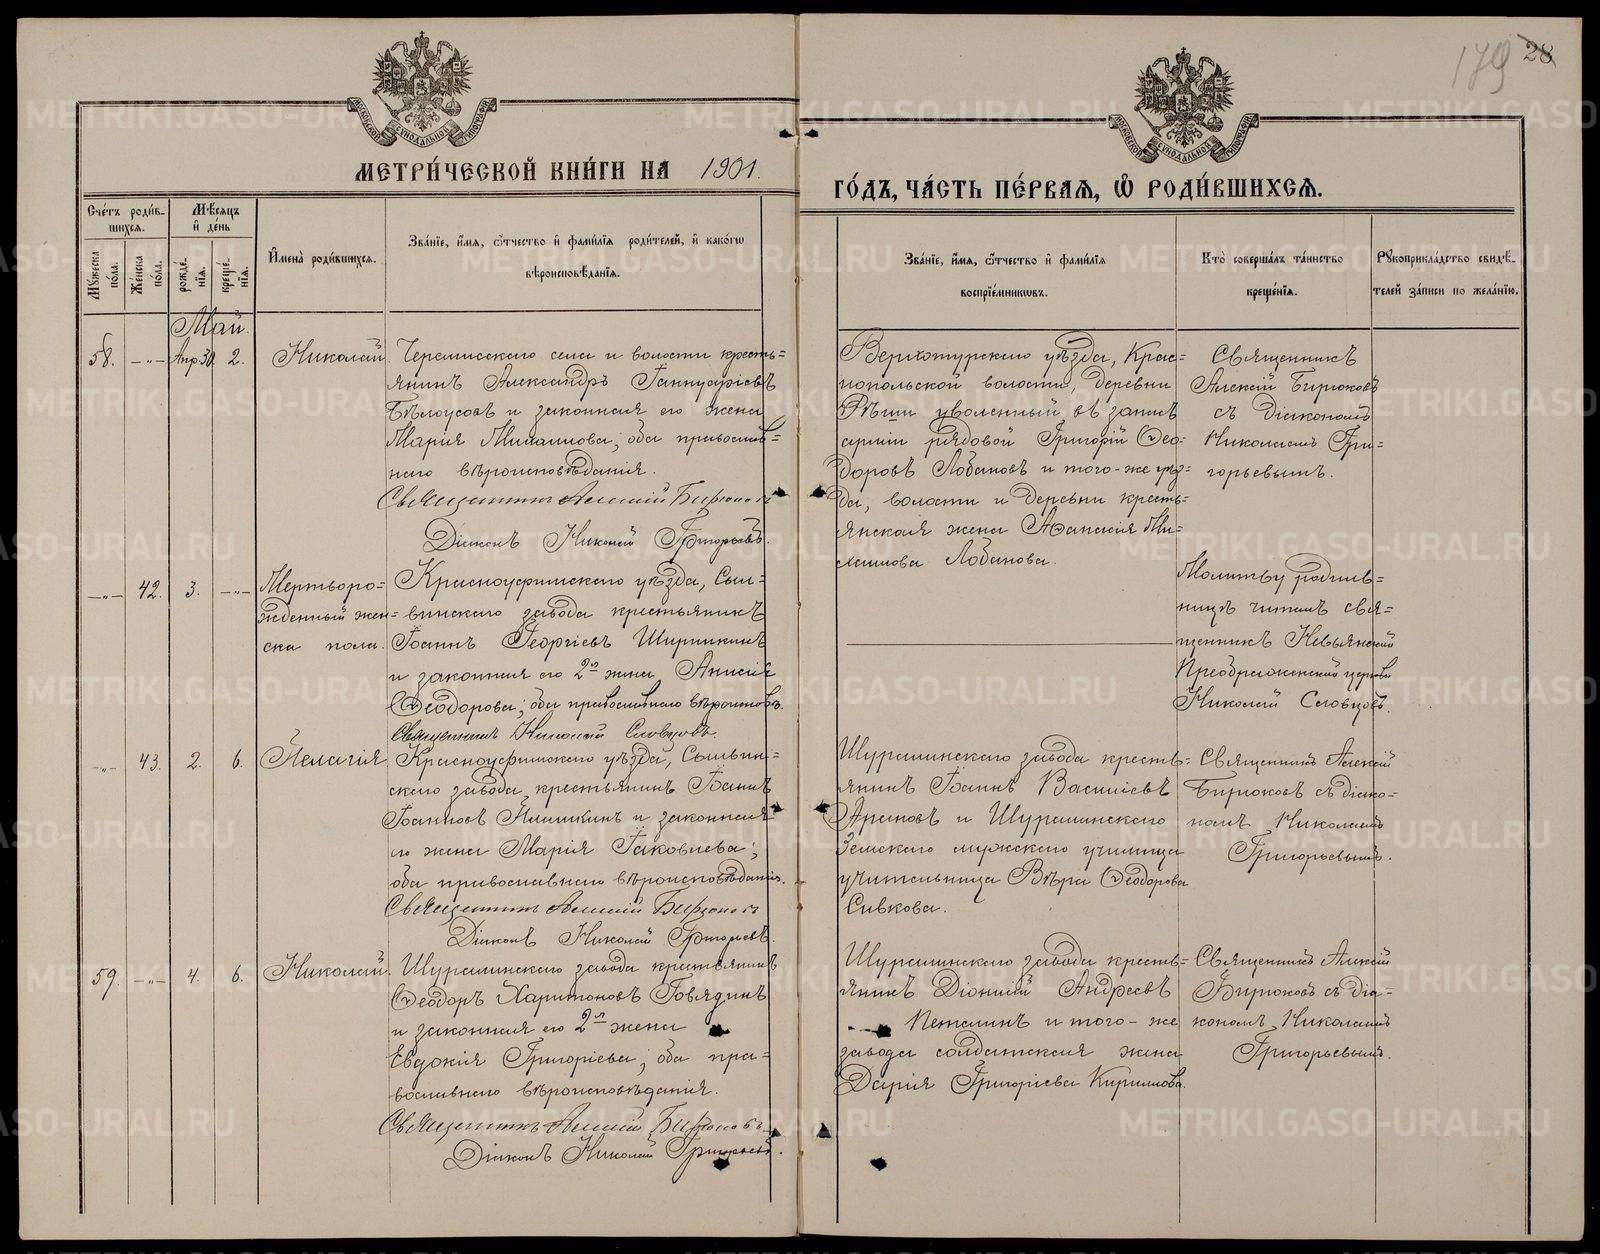 179
28
МЕТРИ́ЧЕСКОЙ КНИ́ГИ НА 1901.
ГО́ДЪ, ЧА́СТЬ ПЕ́РВАѦ, Ѿ РОДИ́ВШИХСѦ.
Сче́тъ роди́в-
шихсѧ.
Мꙋ́жеска по́ла.
Же́нска по́ла.
Мѣ́сѧцъ
и҆ де́нь
рожде́-
нїѧ.
креще́-
нїѧ.
И҆мена̀ роди́вшихсѧ.
Зва́нїе, и҆́мѧ, ѻ҆́тчество и҆ фами́лїѧ роди́телей, и҆ како́гѡ
вѣроисповѣ́данїѧ.
Зва́нїе, и҆́мѧ, ѻ҆́тчество и҆ фами́лїѧ
воспрїе́мникѡвъ.
Кто̀ соверша́лъ та́инство
креще́нїѧ.
Рꙋкоприкла́дство свидѣ́-
телей за́писи по жела́нїю.
Май.
58. —„— Апр 30. 2. Николай.
Черемисскаго села и волости кресть=
янинъ Александръ Ганнуфріевъ
Бѣлоусовъ и законная его жена
Марія Михаилова; оба православ=
наго вѣроисповѣданія.
Священникъ Алексій Бирюковъ
Діаконъ Николай Григорьевъ.
Верхотурскаго уѣзда, Крас=
нопольской волости, деревни
уволенный въ запасъ
арміи рядовой Григорій Ѳео-
доровъ Лобановъ и того-же уѣз=
да, волости и деревни кресть=
янская жена Аѳанасія Ми=
хаилова Лобанова.
Священникъ
Алексій Бирюковъ
съ діакономъ
Николаемъ Гри-
горьевымъ.
—„— 42. 3. —„— Мертворо=
жденный жен=
ска пола.
Красноуфимскаго уѣзда, Сыл=
винскаго завода крестьянинъ
Іоаннъ Георгіевъ Ширинкинъ
и законная его 2ая жена Анисія
Ѳеодорова; оба православнаго вѣроисповѣ.
Священникъ Николай Словцовъ.
Молитву родиль=
ницѣ читалъ свя=
щенникъ Невьянской
Преображенской церкви
Николай Словцовъ.
—„— 43. 2. 6. Пелагія.
Красноуфимскаго уѣзда, Сылвин=
скаго завода, крестьянинъ Іоаннъ
Іоанновъ и законная
его жена Марія Іаковлева;
оба православнаго вѣроисповѣданія.
Священникъ Алексій Бирюковъ
Діаконъ Николай Григорьевъ.
Шуралинскаго завода кресть=
янинъ Іоаннъ Василіевъ
Араповъ и Шуралинскаго
Земскаго мужскаго училища
учительница Вѣра Ѳеодорова
Сивкова.
Священникъ Алексій
Бирюковъ съ діако=
номъ Николаемъ
Григорьевымъ.
59. —„— 4. 6. Николай.
Шуралинскаго завода крестьянинъ
Ѳеодоръ Харитоновъ Говядинъ
и законная его 2ая жена
Евдокія Григоріева; оба пра=
вославнаго вѣроисповѣданія.
Священникъ Алексій Бирюковъ
Діаконъ Николай Григорьевъ.
Шуралинскаго завода кресть=
янинъ Діонисій Андреевъ
Петелинъ и того-же
завода солдатская жена
Дарія Григоріева Кириллова.
Священникъ Алексій
Бирюковъ съ діа=
кономъ Николаемъ
Григорьевымъ.